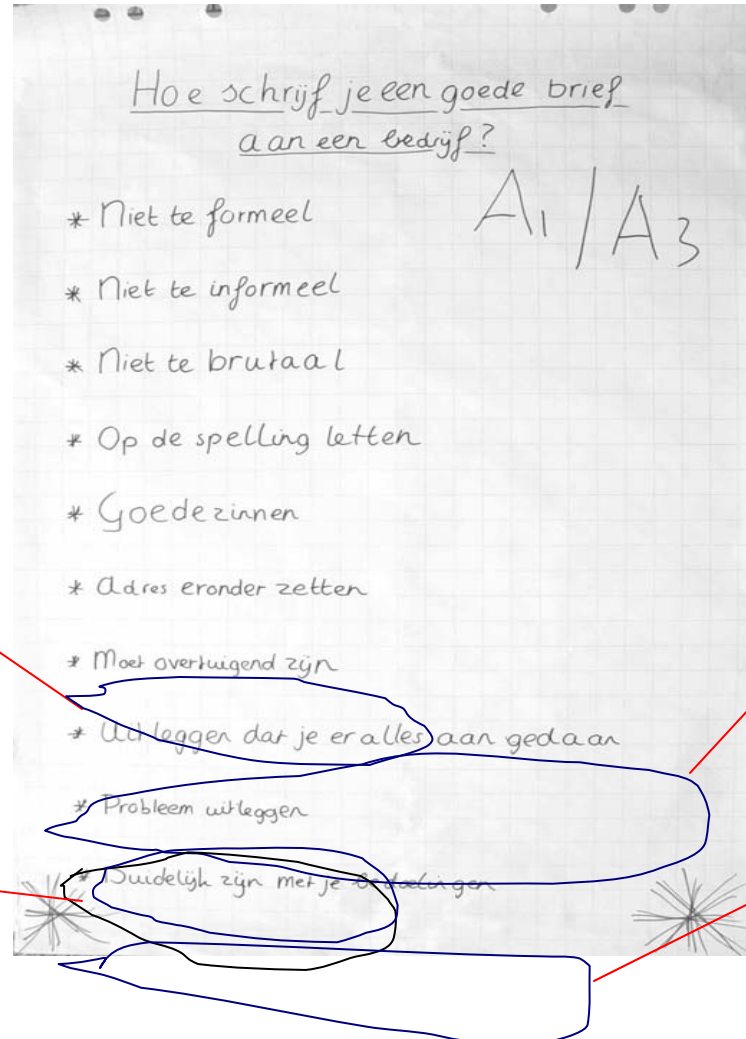 Hoe schrijf je een goede brief
aan een bedrijf?
A1/A3
* Niet te formeel
* Niet te informeel
* Niet te brutaal
* Op de spelling letten
* Goede zinnen
* Adres eronder zetten
* Moet overtuigend zijn
* Uitleggen dat je er alles aan gedaan
* Probleem uitleggen
* Duidelijk zijn met je bedoelingen